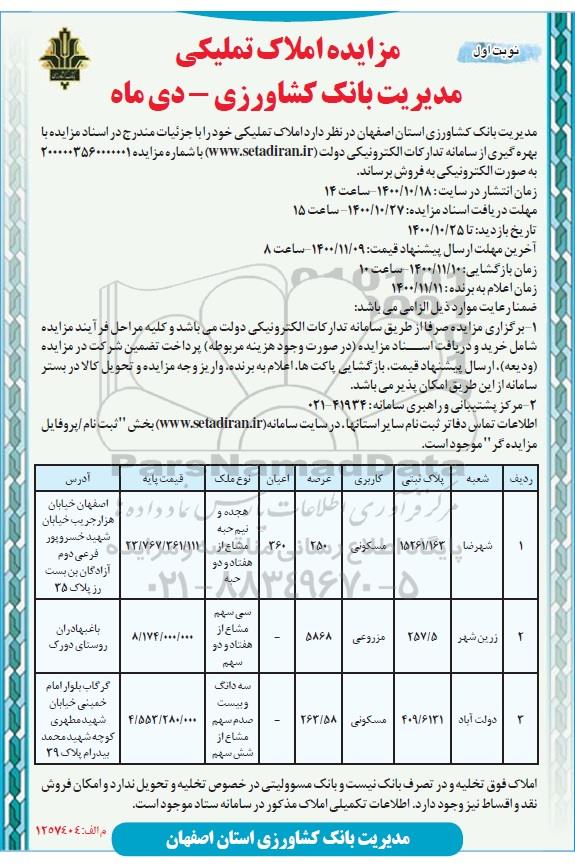 نوبت اول
مزایده املاک تملیکی
مدیریت بانک کشاورزی – دی ماه
مدیریت بانک کشاورزی استان اصفهان در نظر دارد املاک تملیکی خود را با جزئیات مندرج در اسناد مزایده با
بهره گیری از سامانه تدارکات الکترونیکی دولت (www.setadiran.ir) با شماره مزایده ۲۰۰۰۰۰۳۵۶۰۰۰۰۰۰۱
به صورت الکترونیکی به فروش برساند.
زمان انتشار در سایت : ۱۴۰۰/۱۰/۱۸-ساعت ۱۴
مهلت دریافت اسناد مزایده: ۱۴۰۰/۱۰/۲۷- ساعت ۱۵
تاریخ بازدید: تا ۱۴۰۰/۱۰/۲۵
آخرین مهلت ارسال پیشنهاد قیمت: ۱۴۰۰/۱۱/۰۹-ساعت ۸
زمان بازگشایی: ۱۴۰۰/۱۱/۱۰-ساعت ۱۰
زمان اعلام به برنده : ۱۴۰۰/۱۱/۱۱
ضمنا رعایت موارد ذیل الزامی می باشد:
۱-برگزاری مزایده صرفا از طریق سامانه تدارکات الکترونیکی دولت می باشد و کلیه مراحل فرآیند مزایده
شامل خرید و دریافت اســناد مزایده (در صورت وجود هزینه مربوطه) پرداخت تضمین شرکت در مزایده
(ودیعه)، ارسال پیشنهاد قیمت، بازگشایی پاکت ها، اعلام به برنده، واریز وجه مزایده و تحویل کالا در بستر
سامانه از این طریق امکان پذیر می باشد.
۲-مرکز پشتیبانی و راهبری سامانه : ۴۱۹۳۴-۰۲۱
اطلاعات تماس دفاتر ثبت نام سایر استانها، در سایت سامانه(www.setadiran.ir) بخش "ثبت نام /پروفایل
مزایده گر" موجود است.
ردیف شعبه پلاک ثبتی کاربری عرصه اعیان نوع ملک قیمت پایه آدرس
۱ شهرضا ۱۵۲۶۱/۱۶۳ مسکونی ۲۵۰ ۳۶۰ هجده و نیم حبه مشاع از هفتاد و دو حبه ۲۳/۷۶۷/۳۶۱/۱۱۱ اصفهان خیابان هزارجریب خیابان شهید خسروپور فرعی دوم آزادگان بن بست رز پلاک ۳۵
۲ زرین شهر ۲۵۷/۵ مزروعی ۵۸۶۸ - سی سهم مشاع از هفتاد و دو سهم ۸/۱۷۴/۰۰۰/۰۰۰ باغبهادران روستای دورک
۳ دولت آباد ۴۰۹/۶۱۳۱ مسکونی ۲۶۳/۵۸ - سه دانگ و بیست صدم سهم مشاع از شش سهم ۴/۵۵۳/۲۸۰/۰۰۰ گرگاب بلوار امام خمینی خیابان شهید مطهری کوچه شهید محمد بیدرام پلاک ۳۹
املاک فوق تخلیه و در تصرف بانک نیست و بانک مسوولیتی در خصوص تخلیه و تحویل ندارد و امکان فروش
نقد و اقساط نیز وجود دارد. اطلاعات تکمیلی املاک مذکور در سامانه ستاد موجود است.
م الف: ۱۲۵۷۴۰۴
مدیریت بانک کشاورزی استان اصفهان
ParsNamadData
مرکز فرآوری اطلاعات پارس نماد داده ها
پایگاه اطلاع رسانی مناقصه و مزایده
۰۲۱-۸۸۳۴۹۶۷۰-۵